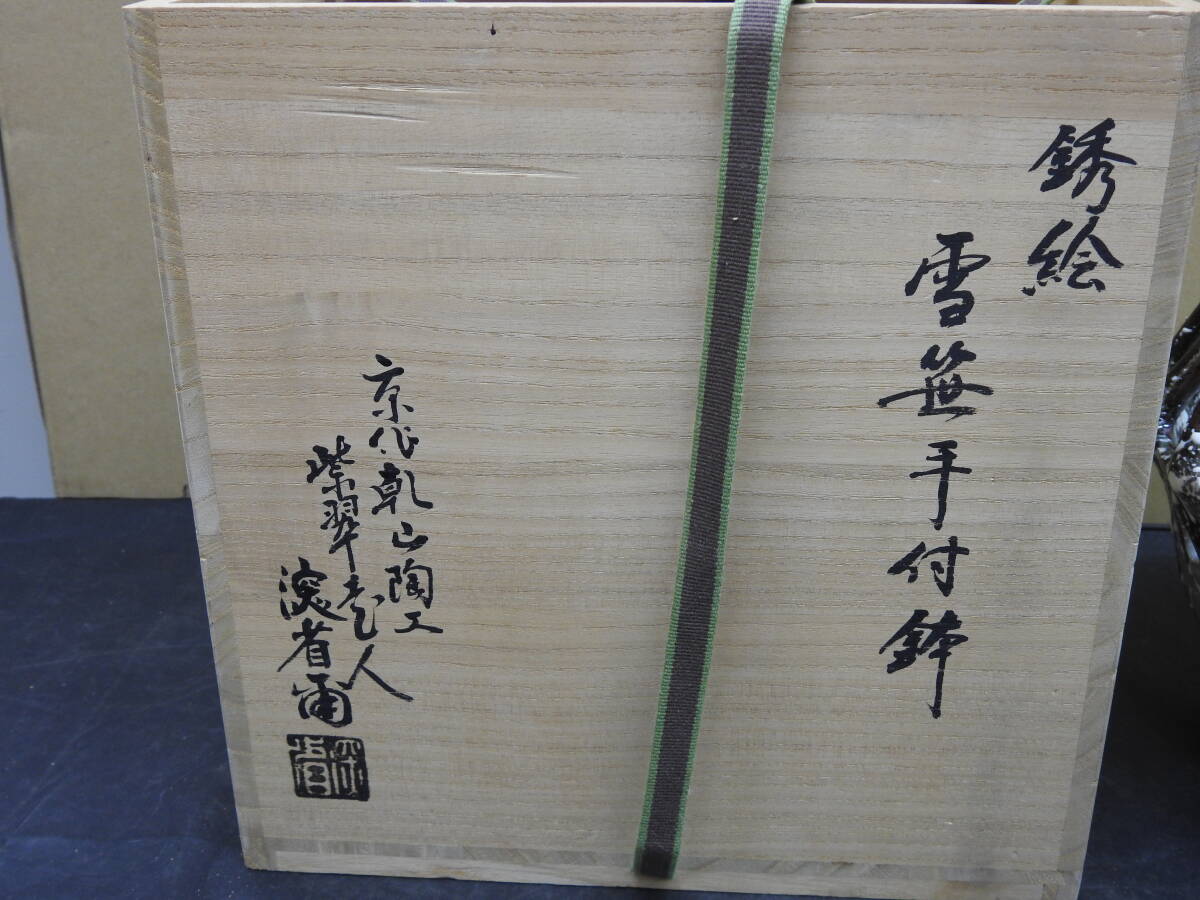 銹絵
雪笹手付鉢
京代乾山陶工
紫翠老人
深省